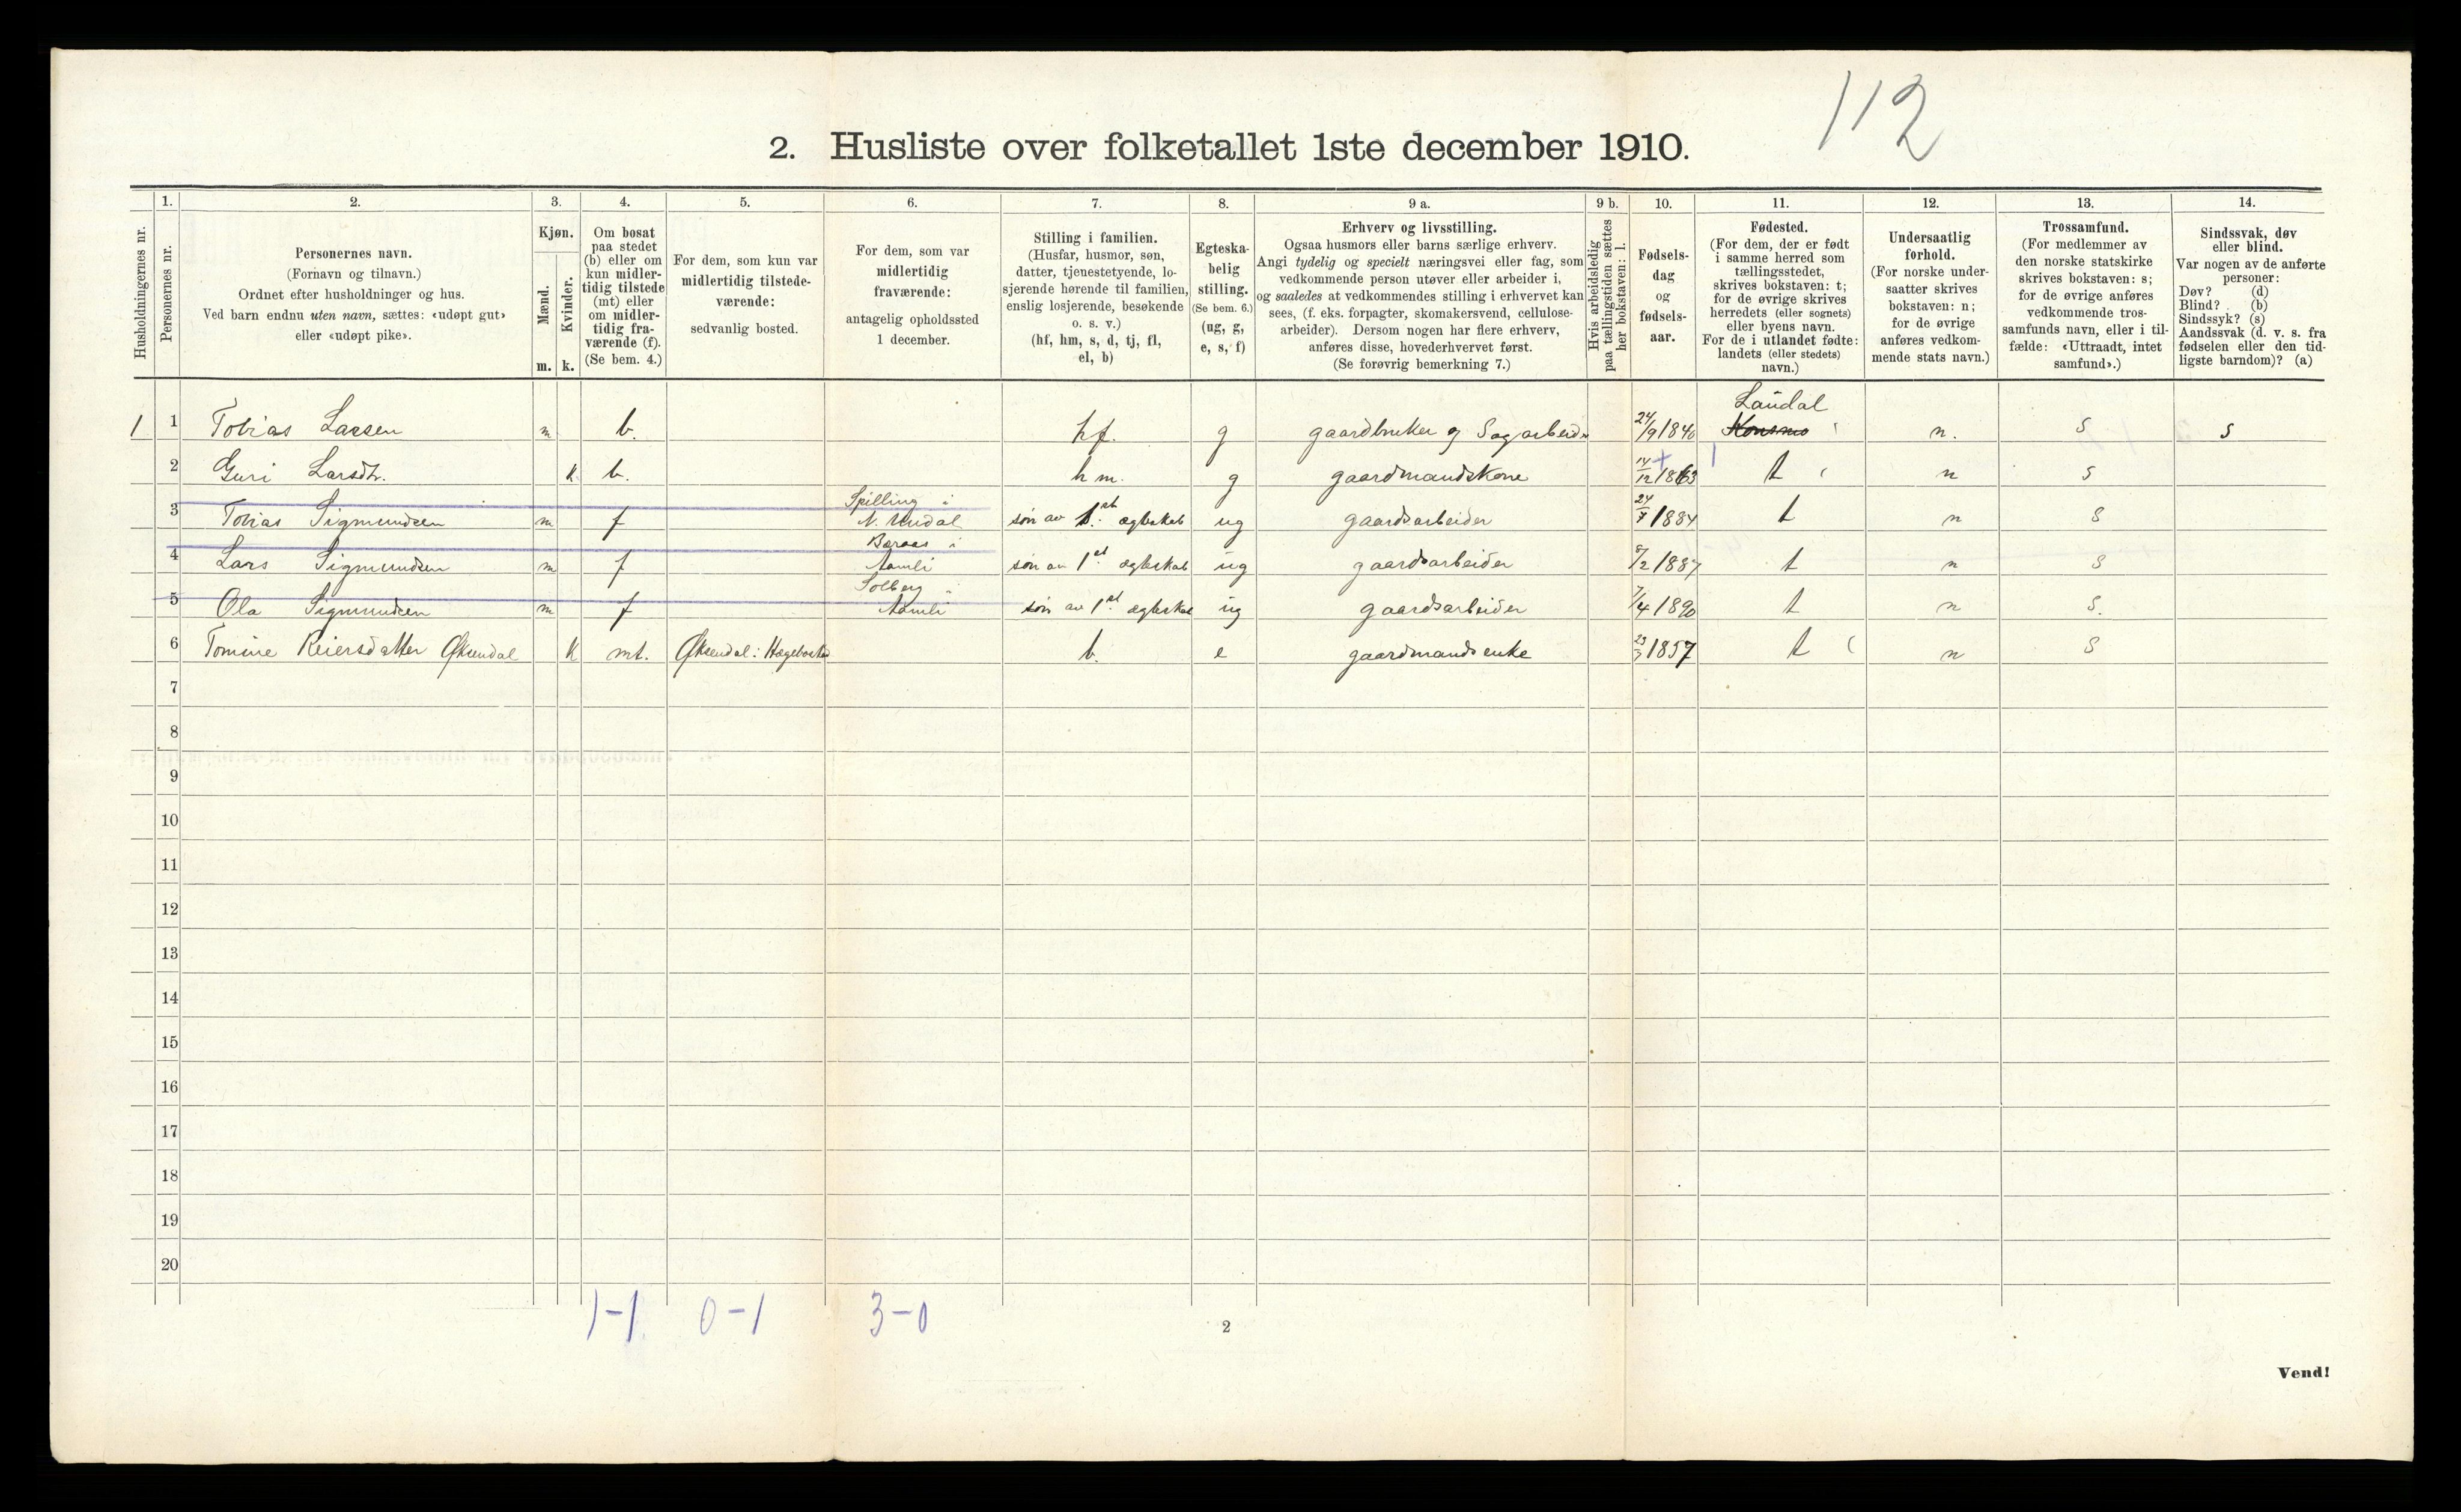 112
2. Husliste over folketallet 1ste december 1910.
Husholdningernes nr.
1.
Personernes nr.
2.
Personernes navn.
(Fornavn og tilnavn.)
Ordnet efter husholdninger og hus.
Ved barn endnu uten navn, sættes: «udøpt gut»
eller «udøpt pike».
3.
Kjøn.
Mænd.
Kvinder.
m. k.
4.
Om bosat
paa stedet
(b) eller om
kun midler-
tidig tilstede
(mt) eller
om midler-
tidig fra-
værende (f).
(Se bem. 4.)
5.
For dem, som kun var
midlertidig tilstede-
værende:
sedvanlig bosted.
6.
For dem, som var
midlertidig
fraværende:
antagelig opholdssted
1 december.
7.
Stilling i familien.
(Husfar, husmor, søn,
datter, tjenestetyende, lo-
sjerende hørende til familien,
enslig losjerende, besøkende
o. s. v.)
(hf, hm, s, d, tj, fl,
el, b)
8.
Egteska-
belig
stilling.
(Se bem. 6.)
(ug, g,
e, s, f)
9 a.
Erhverv og livsstilling.
Ogsaa husmors eller barns særlige erhverv.
Angi tydelig og specielt næringsvei eller fag, som
vedkommende person utøver eller arbeider i,
og saaledes at vedkommendes stilling i erhvervet kan
sees, (f. eks. forpagter, skomakersvend, cellulose-
arbeider). Dersom nogen har flere erhverv,
anføres disse, hovederhvervet først.
(Se forøvrig bemerkning 7.)
9 b.
Hvis arbeidsledig
paa tællingstiden sættes
her bokstaven: l.
10.
Fødsels-
dag
og
fødsels-
aar.
11.
Fødested.
(For dem, der er født
i samme herred som
tællingsstedet,
skrives bokstaven: t;
for de øvrige skrives
herredets (eller sognets)
eller byens navn.
For de i utlandet fødte:
landets (eller stedets)
navn.)
12.
Undersaatlig
forhold.
(For norske under-
saatter skrives
bokstaven: n;
for de øvrige
anføres vedkom-
mende stats navn.)
13.
Trossamfund.
(For medlemmer av
den norske statskirke
skrives bokstaven: s;
for de øvrige anføres
vedkommende tros-
samfunds navn, eller i til-
fælde: «Uttraadt, intet
samfund».)
14.
Sindssvak, døv
eller blind.
Var nogen av de anførte
personer:
Døv? (d)
Blind? (b)
Sindssyk? (s)
Aandssvak (d. v. s. fra
fødselen eller den tid-
ligste barndom)? (a)
Laudal
1 1 Tobias Larsen m b. hf. g gaardbruker og Sagarbeider 24/9 1840 Konsmo n. s s
2 Guri Larsdtr. k b. hm. g gaardmandskone 14/12 1863 t n s
Spilling i
3 Tobias Sigmundsen m f N. Undal søn av 1st egteskab ug gaardsarbeider 24/7 1884 t n s
4 Lars Sigmundsen m f Aamli søn av 1st egteskab ug gaardsarbeider 8/2 1887 t n s
Solberg i
5 Ola Sigmundsen m f Aamli søn av 1st egteskab ug gaardsarbeider 7/4 1890 t n s.
6 Tomine Reiersdatter Øksendal k mt. Øksendal i Hægebostad b. e gaardmandsenke 1857 t n s
7
8
9
10
11
12
13
14
15
16
17
18
19
20
1-1 0-1 3-0
2
Vend!